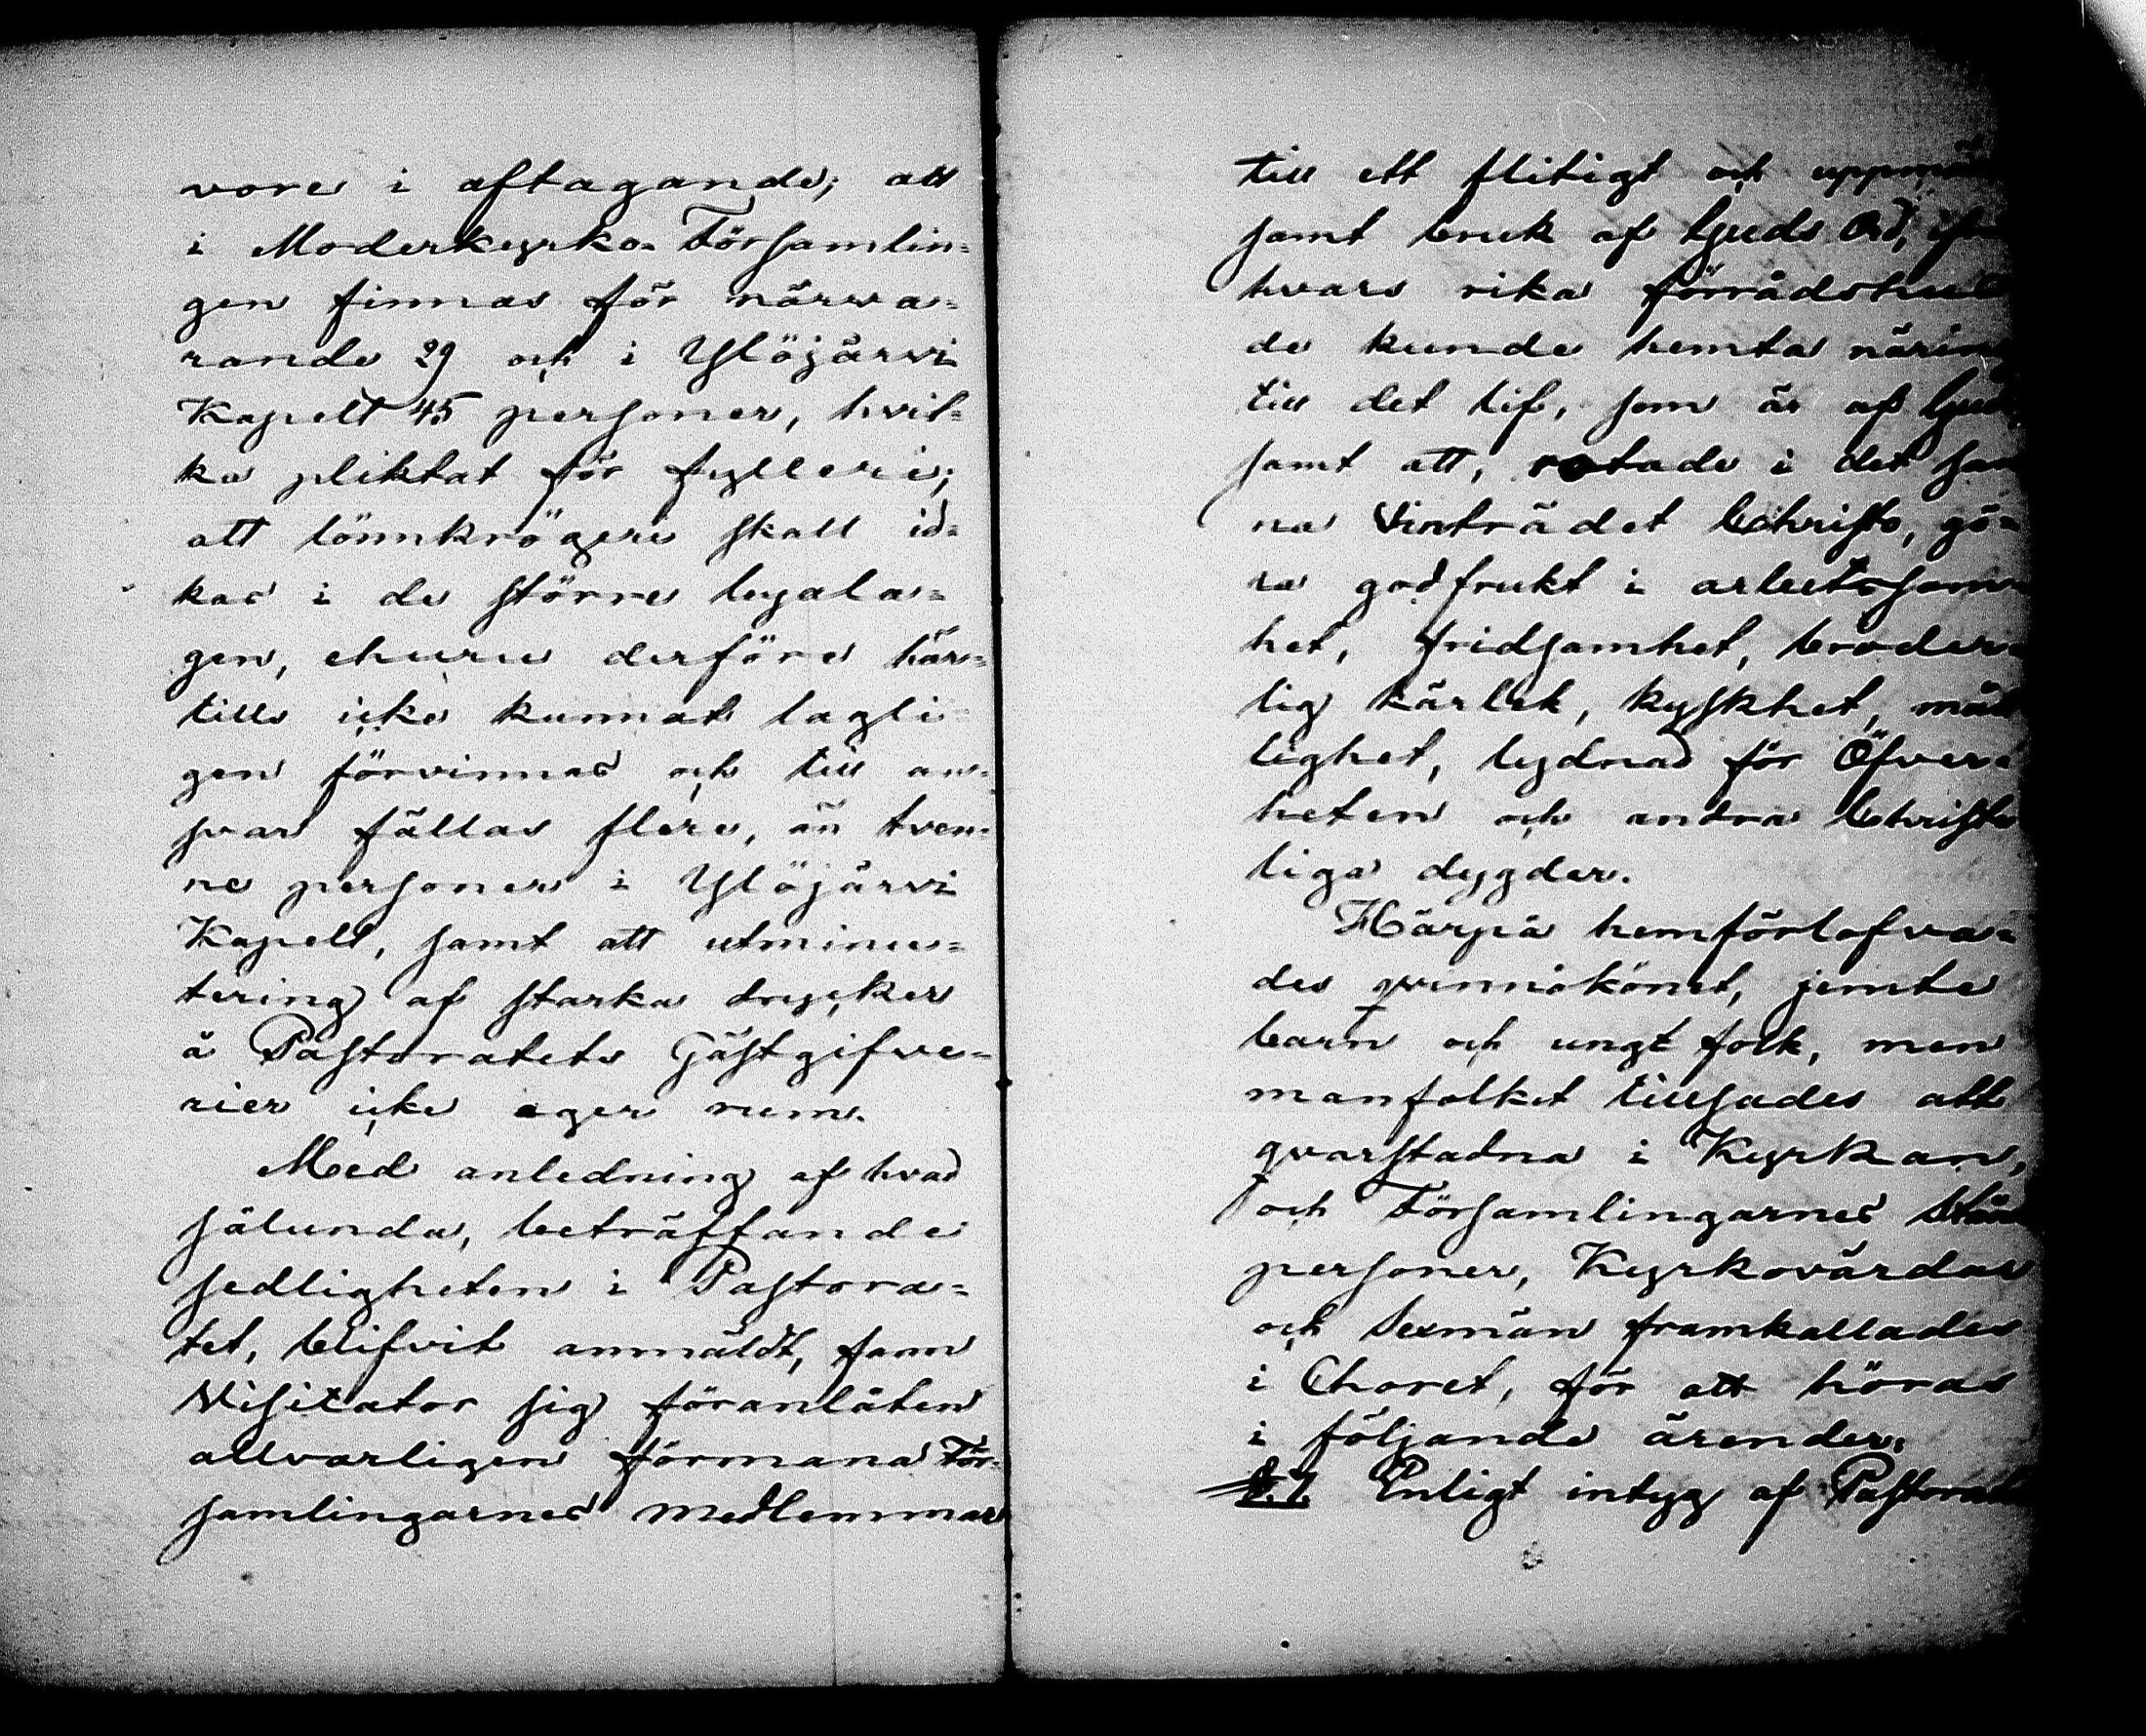 vore i aftagande; att
i Moderkyrko-Församlin=
gen finnas för närva=
rande 29 och i Ylöjärvi
Kapell 45 personer, hvil=
ka pliktat för fylleri;
att lönnkrögeri skall id=
kas i de större byala=
gen, ehuru derföre här=
tills icke kunnat lagli=
gen förvinnas och till an=
svar fällas flere, än tven=
ne personer i Ylöjärvi
Kapell, samt att utminu=
tering af starka drycker
å Pastoratets Gästgifve=
rier icke eger rum.
Med anledning af hvad
sålunda, beträffande
sedligheten i Pastora=
tet, blifvit anmäldt, fann
Visitator sig föranlåten
allvarligen förmana För=
samlingarnes medlemmar
till ett flitigt och uppmärk
samt bruk af Guds Ord,
hvars rika förrådshus
de kunde hemta näring
till det lif, som är af Gud,
samt att, rotade i det san
na Vinträdet Christo, gö=
ra god frukt i arbetssam
het, fridsamhet, broder=
lig kärlek, kyskhet, måt
lighet, lydnad för Öfver=
heten och andra Christe
liga dygder.
Härpå hemförlofva=
des qvinnokönet, jemte
barn och ungt folk, men
manfolket tillsades att
qvarstadna i Kyrkan,
och Församlingarnes Stånds
personer, Kyrkovärdar
och Sexmän framkallades
i Choret, för att höras
i följande ärender.
§.1. Enligt intyg af Pastorat